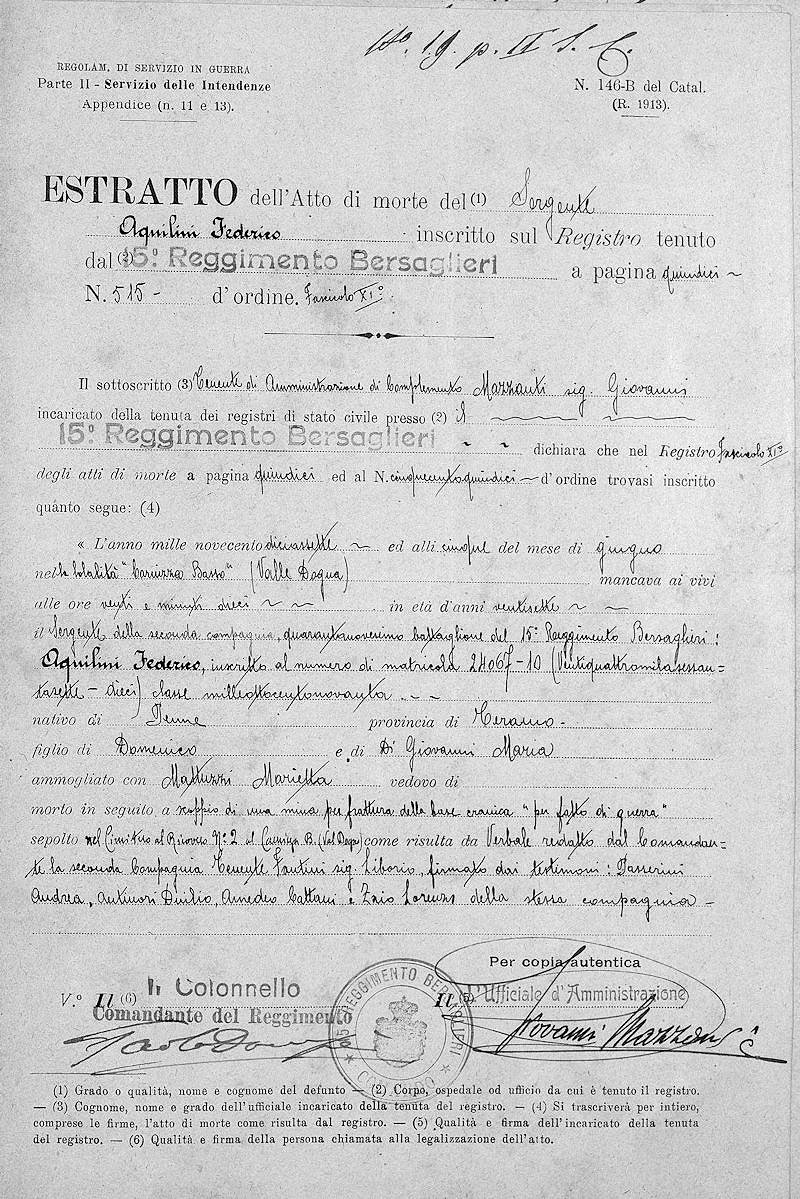 N.o 19. p. II S. C.
REGOLAM. DI SERVIZIO IN GUERRA
Parte II - Servizio delle Intendenze
Appendice (n. 11 e 13).
N. 146-B del Catal.
(R. 1913).
ESTRATTO dell'Atto di morte del (1) Sergente
Aquilini Federico inscritto sul Registro tenuto
dal (2) 15º. Reggimento Bersaglieri a pagina quindici ~
N. 515 - d'ordine. Fascicolo XIº.
Il sottoscritto (3) Tenente di Amministrazione di Complemento Mazzanti sig. Giovanni
incaricato della tenuta dei registri di stato civile presso (2) il
15º Reggimento Bersaglieri ~ ~ dichiara che nel Registro Fascicolo XIº
degli atti di morte a pagina quindici ed al N. cinquecentoquindici ~ d'ordine trovasi inscritto
quanto segue: (4)
« L'anno mille novecento diciassette ~ ed alli cinque del mese di giugno
nella località "Carnizza Basso" (Valle Dogna) mancava ai vivi
alle ore venti e minuti dieci ~ ~ in età d'anni ventisette ~ ~
il Sergente della seconda compagnia, quarantanovesimo battaglione del 15º Reggimento Bersaglieri:
Aquilini Federico, inscritto al numero di matricola 24067-10 (Ventiquattromilasessan=
tasette - dieci) classe milleottocentonovanta. - -
nativo di Penne provincia di Teramo -
figlio di Domenico e di Di Giovanni Maria
ammogliato con Mattuzzi Marietta vedovo di
morto in seguito a scoppio di una mina per frattura della base cranica "per fatto di guerra"
sepolto nel Cimitero al Ricovero Nº 2 al Carnizza B. (Val Dogna) come risulta da Verbale redatto dal Comandan=
te la seconda Compagnia Tenente Fantini sig. Liborio, firmato dai testimoni: Passerini
Andrea, Antinori Duilio, Amedeo Cattani e Zaio Lorenzo della stessa compagnia -
Per copia autentica
V.º Il (6) Il Colonnello
Comandante del Reggimento
Il (5) L'Ufficiale d'Amministrazione
Giovanni Mazzanti
15 REGGIMENTO BERSAGLIERI
(1) Grado o qualità, nome e cognome del defunto — (2) Corpo, ospedale od ufficio da cui è tenuto il registro.
— (3) Cognome, nome e grado dell'ufficiale incaricato della tenuta del registro. — (4) Si trascriverà per intiero,
comprese le firme, l'atto di morte come risulta dal registro. — (5) Qualità e firma dell'incaricato della tenuta
del registro. — (6) Qualità e firma della persona chiamata alla legalizzazione dell'atto.